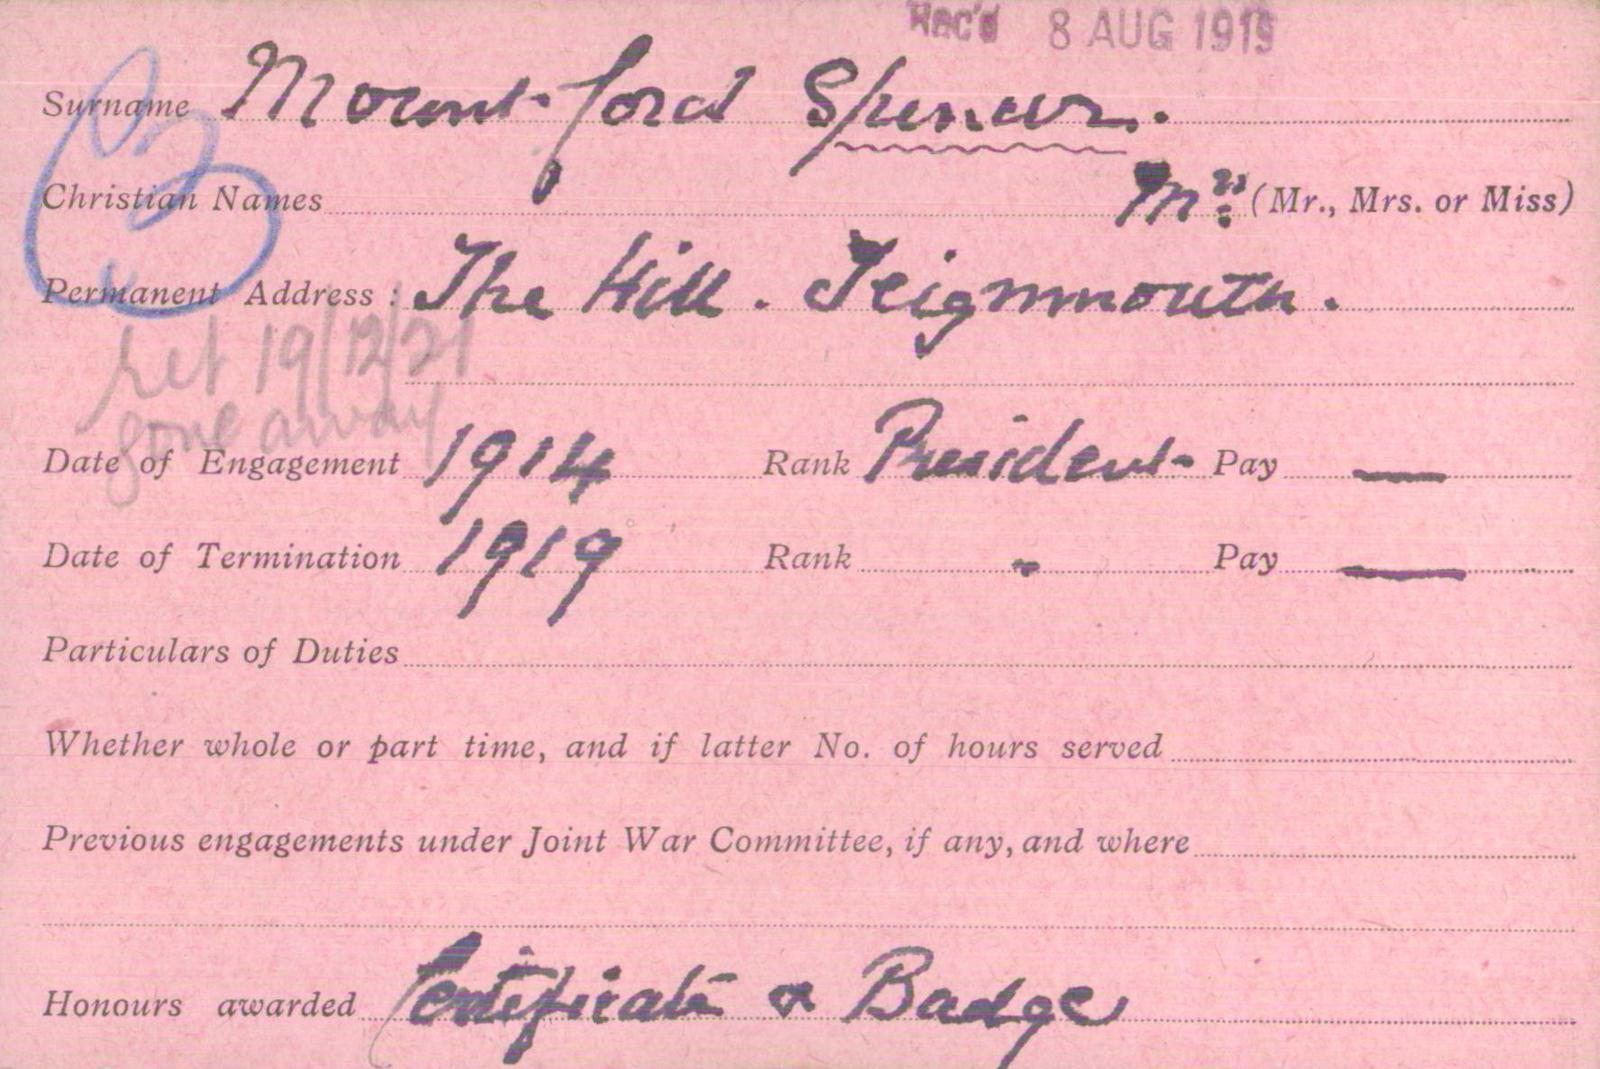 Rec'd 8 AUG 1919
Surname Mountford Spencer.
Christian Names Mrs (Mr., Mrs. or Miss)
Permanent Address : The Hill. Teignmouth.
ret 19/12/21
gone away
Date of Engagement 1914 Rank President Pay —
Date of Termination 1919 Rank " Pay —
Particulars of Duties
Whether whole or part time, and if latter No. of hours served
Previous engagements under Joint War Committee, if any, and where
Honours awarded Certificate & Badge